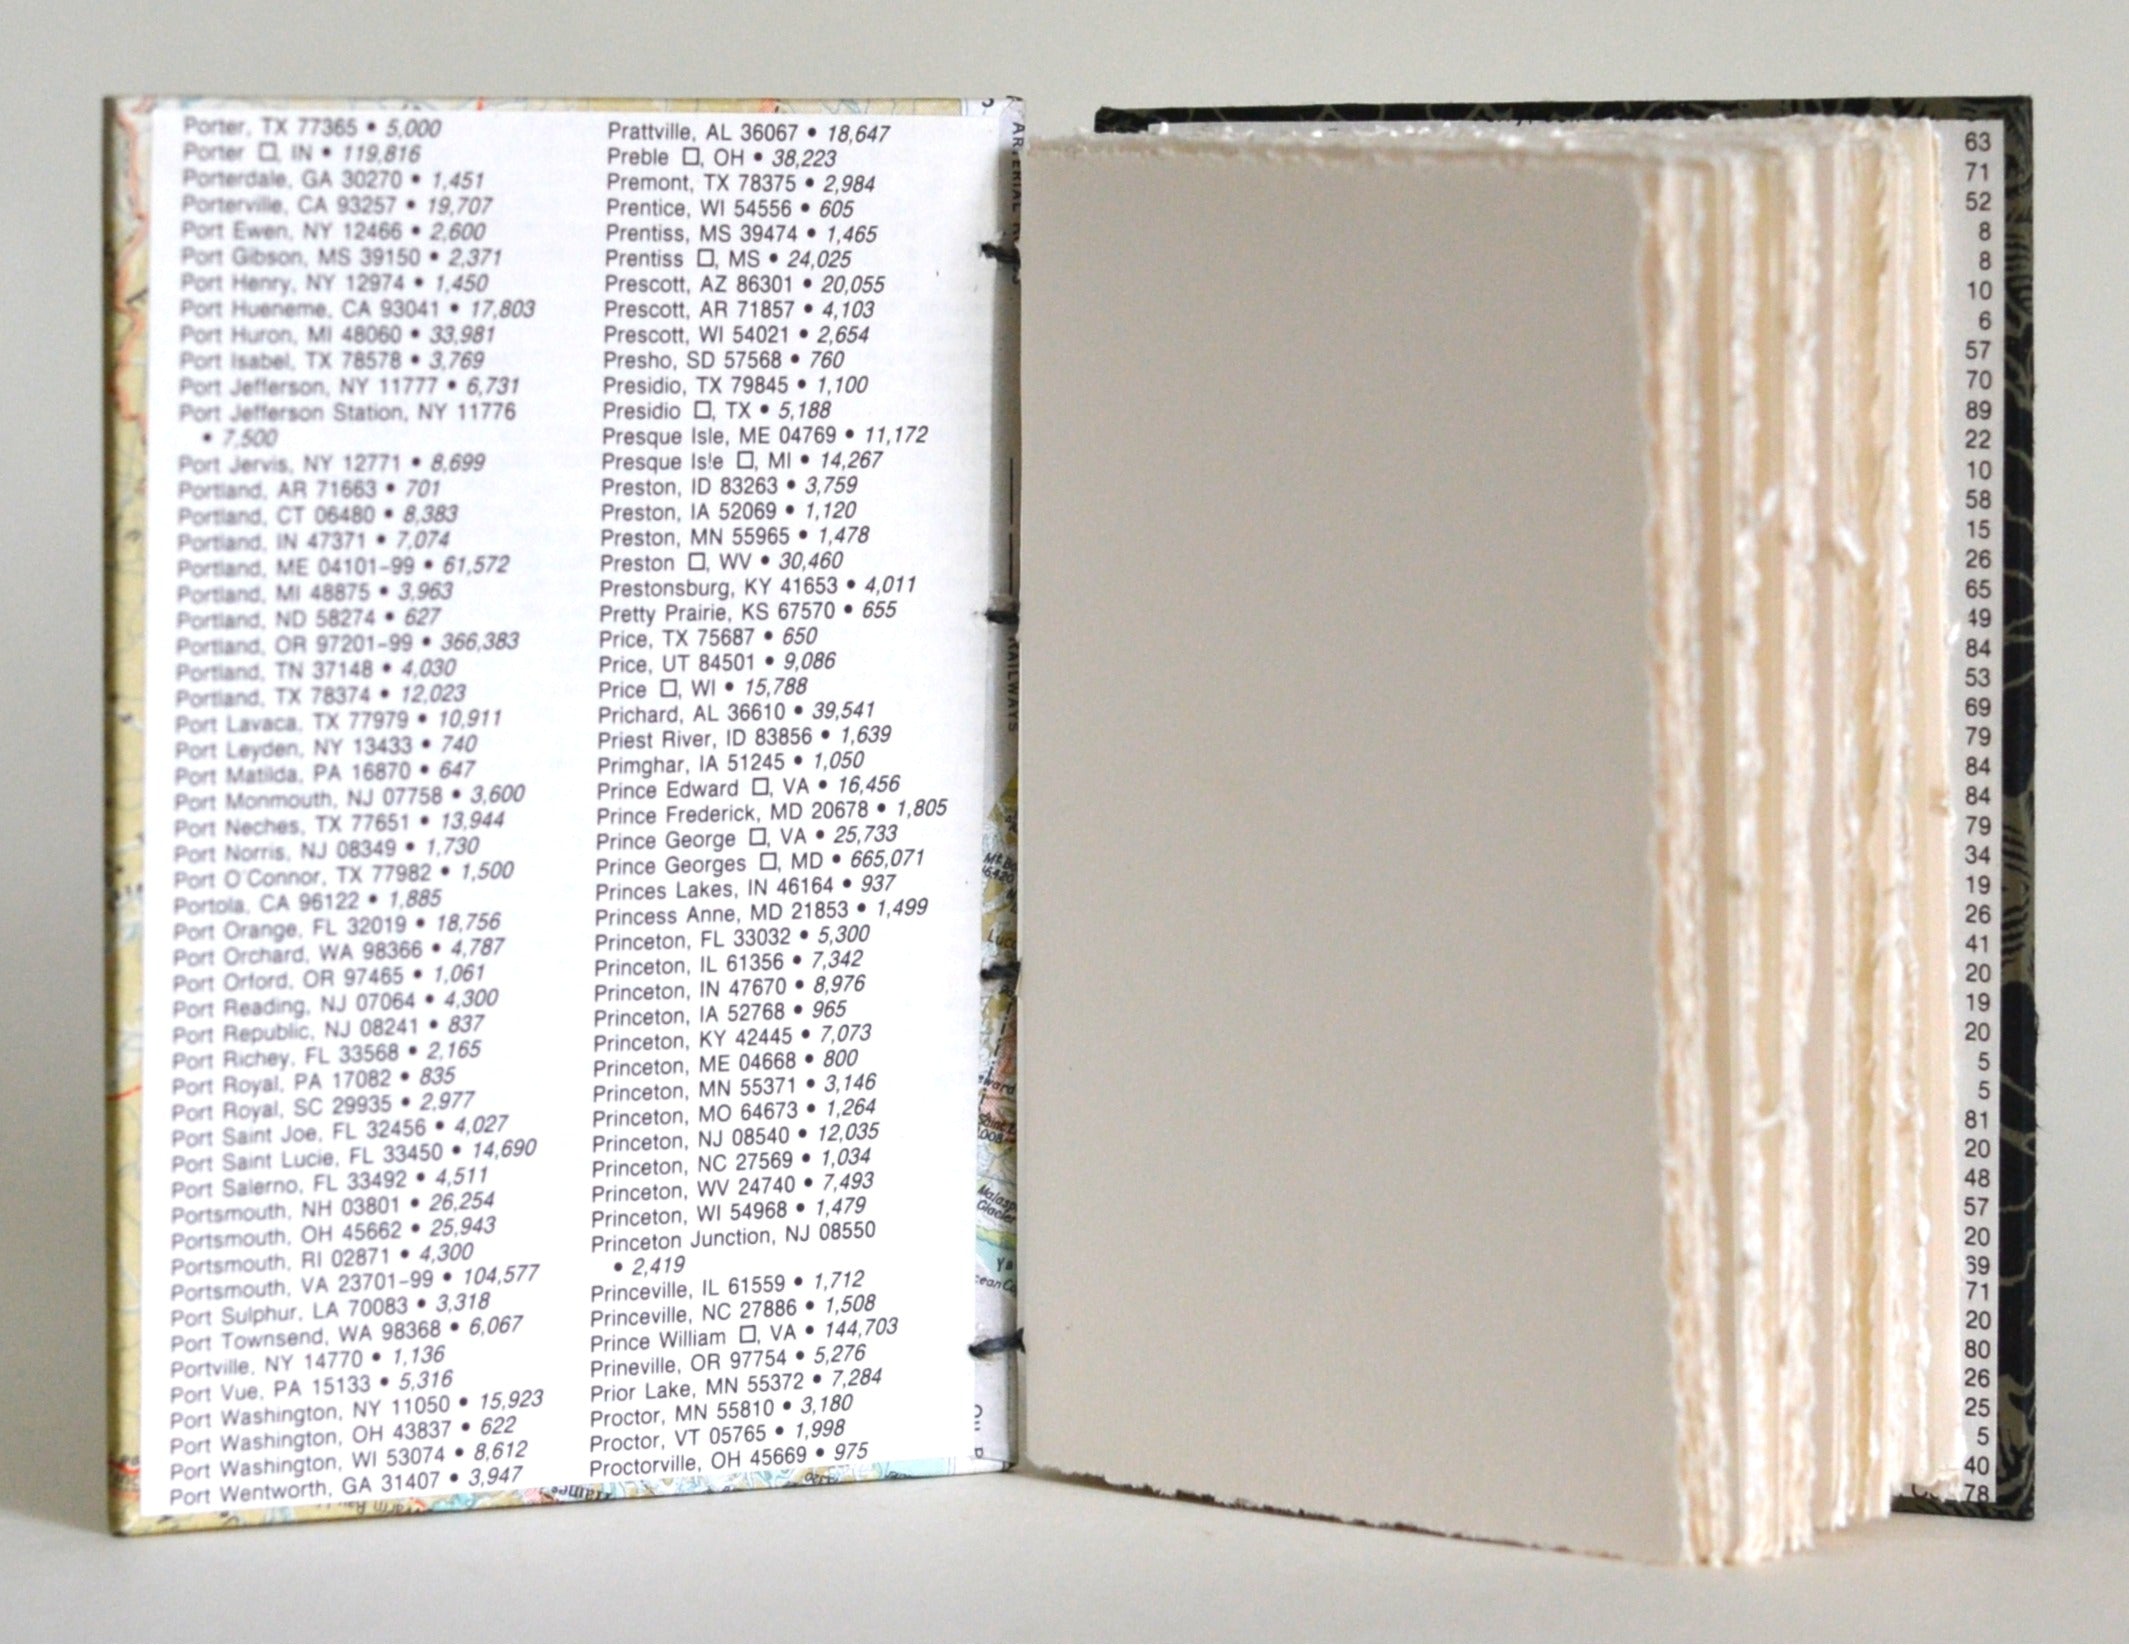 Porter, TX 77365 • 5,000
Porter □, IN • 119,816
Porterdale, GA 30270 • 1,451
Porterville, CA 93257 • 19,707
Port Ewen, NY 12466 • 2,600
Port Gibson, MS 39150 • 2,371
Port Henry, NY 12974 • 1,450
Port Hueneme, CA 93041 • 17,803
Port Huron, MI 48060 • 33,981
Port Isabel, TX 78578 • 3,769
Port Jefferson, NY 11777 • 6,731
Port Jefferson Station, NY 11776
• 7,500
Port Jervis, NY 12771 • 8,699
Portland, AR 71663 • 701
Portland, CT 06480 • 8,383
Portland, IN 47371 • 7,074
Portland, ME 04101–99 • 61,572
Portland, MI 48875 • 3,963
Portland, ND 58274 • 627
Portland, OR 97201–99 • 366,383
Portland, TN 37148 • 4,030
Portland, TX 78374 • 12,023
Port Lavaca, TX 77979 • 10,911
Port Leyden, NY 13433 • 740
Port Matilda, PA 16870 • 647
Port Monmouth, NJ 07758 • 3,600
Port Neches, TX 77651 • 13,944
Port Norris, NJ 08349 • 1,730
Port O'Connor, TX 77982 • 1,500
Portola, CA 96122 • 1,885
Port Orange, FL 32019 • 18,756
Port Orchard, WA 98366 • 4,787
Port Orford, OR 97465 • 1,061
Port Reading, NJ 07064 • 4,300
Port Republic, NJ 08241 • 837
Port Richey, FL 33568 • 2,165
Port Royal, PA 17082 • 835
Port Royal, SC 29935 • 2,977
Port Saint Joe, FL 32456 • 4,027
Port Saint Lucie, FL 33450 • 14,690
Port Salerno, FL 33492 • 4,511
Portsmouth, NH 03801 • 26,254
Portsmouth, OH 45662 • 25,943
Portsmouth, RI 02871 • 4,300
Portsmouth, VA 23701–99 • 104,577
Port Sulphur, LA 70083 • 3,318
Port Townsend, WA 98368 • 6,067
Portville, NY 14770 • 1,136
Port Vue, PA 15133 • 5,316
Port Washington, NY 11050 • 15,923
Port Washington, OH 43837 • 622
Port Washington, WI 53074 • 8,612
Port Wentworth, GA 31407 • 3,947
Prattville, AL 36067 • 18,647
Preble □, OH • 38,223
Premont, TX 78375 • 2,984
Prentice, WI 54556 • 605
Prentiss, MS 39474 • 1,465
Prentiss □, MS • 24,025
Prescott, AZ 86301 • 20,055
Prescott, AR 71857 • 4,103
Prescott, WI 54021 • 2,654
Presho, SD 57568 • 760
Presidio, TX 79845 • 1,100
Presidio □, TX • 5,188
Presque Isle, ME 04769 • 11,172
Presque Isle □, MI • 14,267
Preston, ID 83263 • 3,759
Preston, IA 52069 • 1,120
Preston, MN 55965 • 1,478
Preston □, WV • 30,460
Prestonsburg, KY 41653 • 4,011
Pretty Prairie, KS 67570 • 655
Price, TX 75687 • 650
Price, UT 84501 • 9,086
Price □, WI • 15,788
Prichard, AL 36610 • 39,541
Priest River, ID 83856 • 1,639
Primghar, IA 51245 • 1,050
Prince Edward □, VA • 16,456
Prince Frederick, MD 20678 • 1,805
Prince George □, VA • 25,733
Prince Georges □, MD • 665,071
Princes Lakes, IN 46164 • 937
Princess Anne, MD 21853 • 1,499
Princeton, FL 33032 • 5,300
Princeton, IL 61356 • 7,342
Princeton, IN 47670 • 8,976
Princeton, IA 52768 • 965
Princeton, KY 42445 • 7,073
Princeton, ME 04668 • 800
Princeton, MN 55371 • 3,146
Princeton, MO 64673 • 1,264
Princeton, NJ 08540 • 12,035
Princeton, NC 27569 • 1,034
Princeton, WV 24740 • 7,493
Princeton, WI 54968 • 1,479
Princeton Junction, NJ 08550
• 2,419
Princeville, IL 61559 • 1,712
Princeville, NC 27886 • 1,508
Prince William □, VA • 144,703
Prineville, OR 97754 • 5,276
Prior Lake, MN 55372 • 7,284
Proctor, MN 55810 • 3,180
Proctor, VT 05765 • 1,998
Proctorville, OH 45669 • 975
RAILWAYS
Malasp
Glacier
63
71
52
8
8
10
6
57
70
89
22
10
58
15
26
65
49
84
53
69
79
84
84
79
34
19
26
41
20
19
20
5
5
81
20
48
57
20
59
71
20
80
26
25
5
40
78